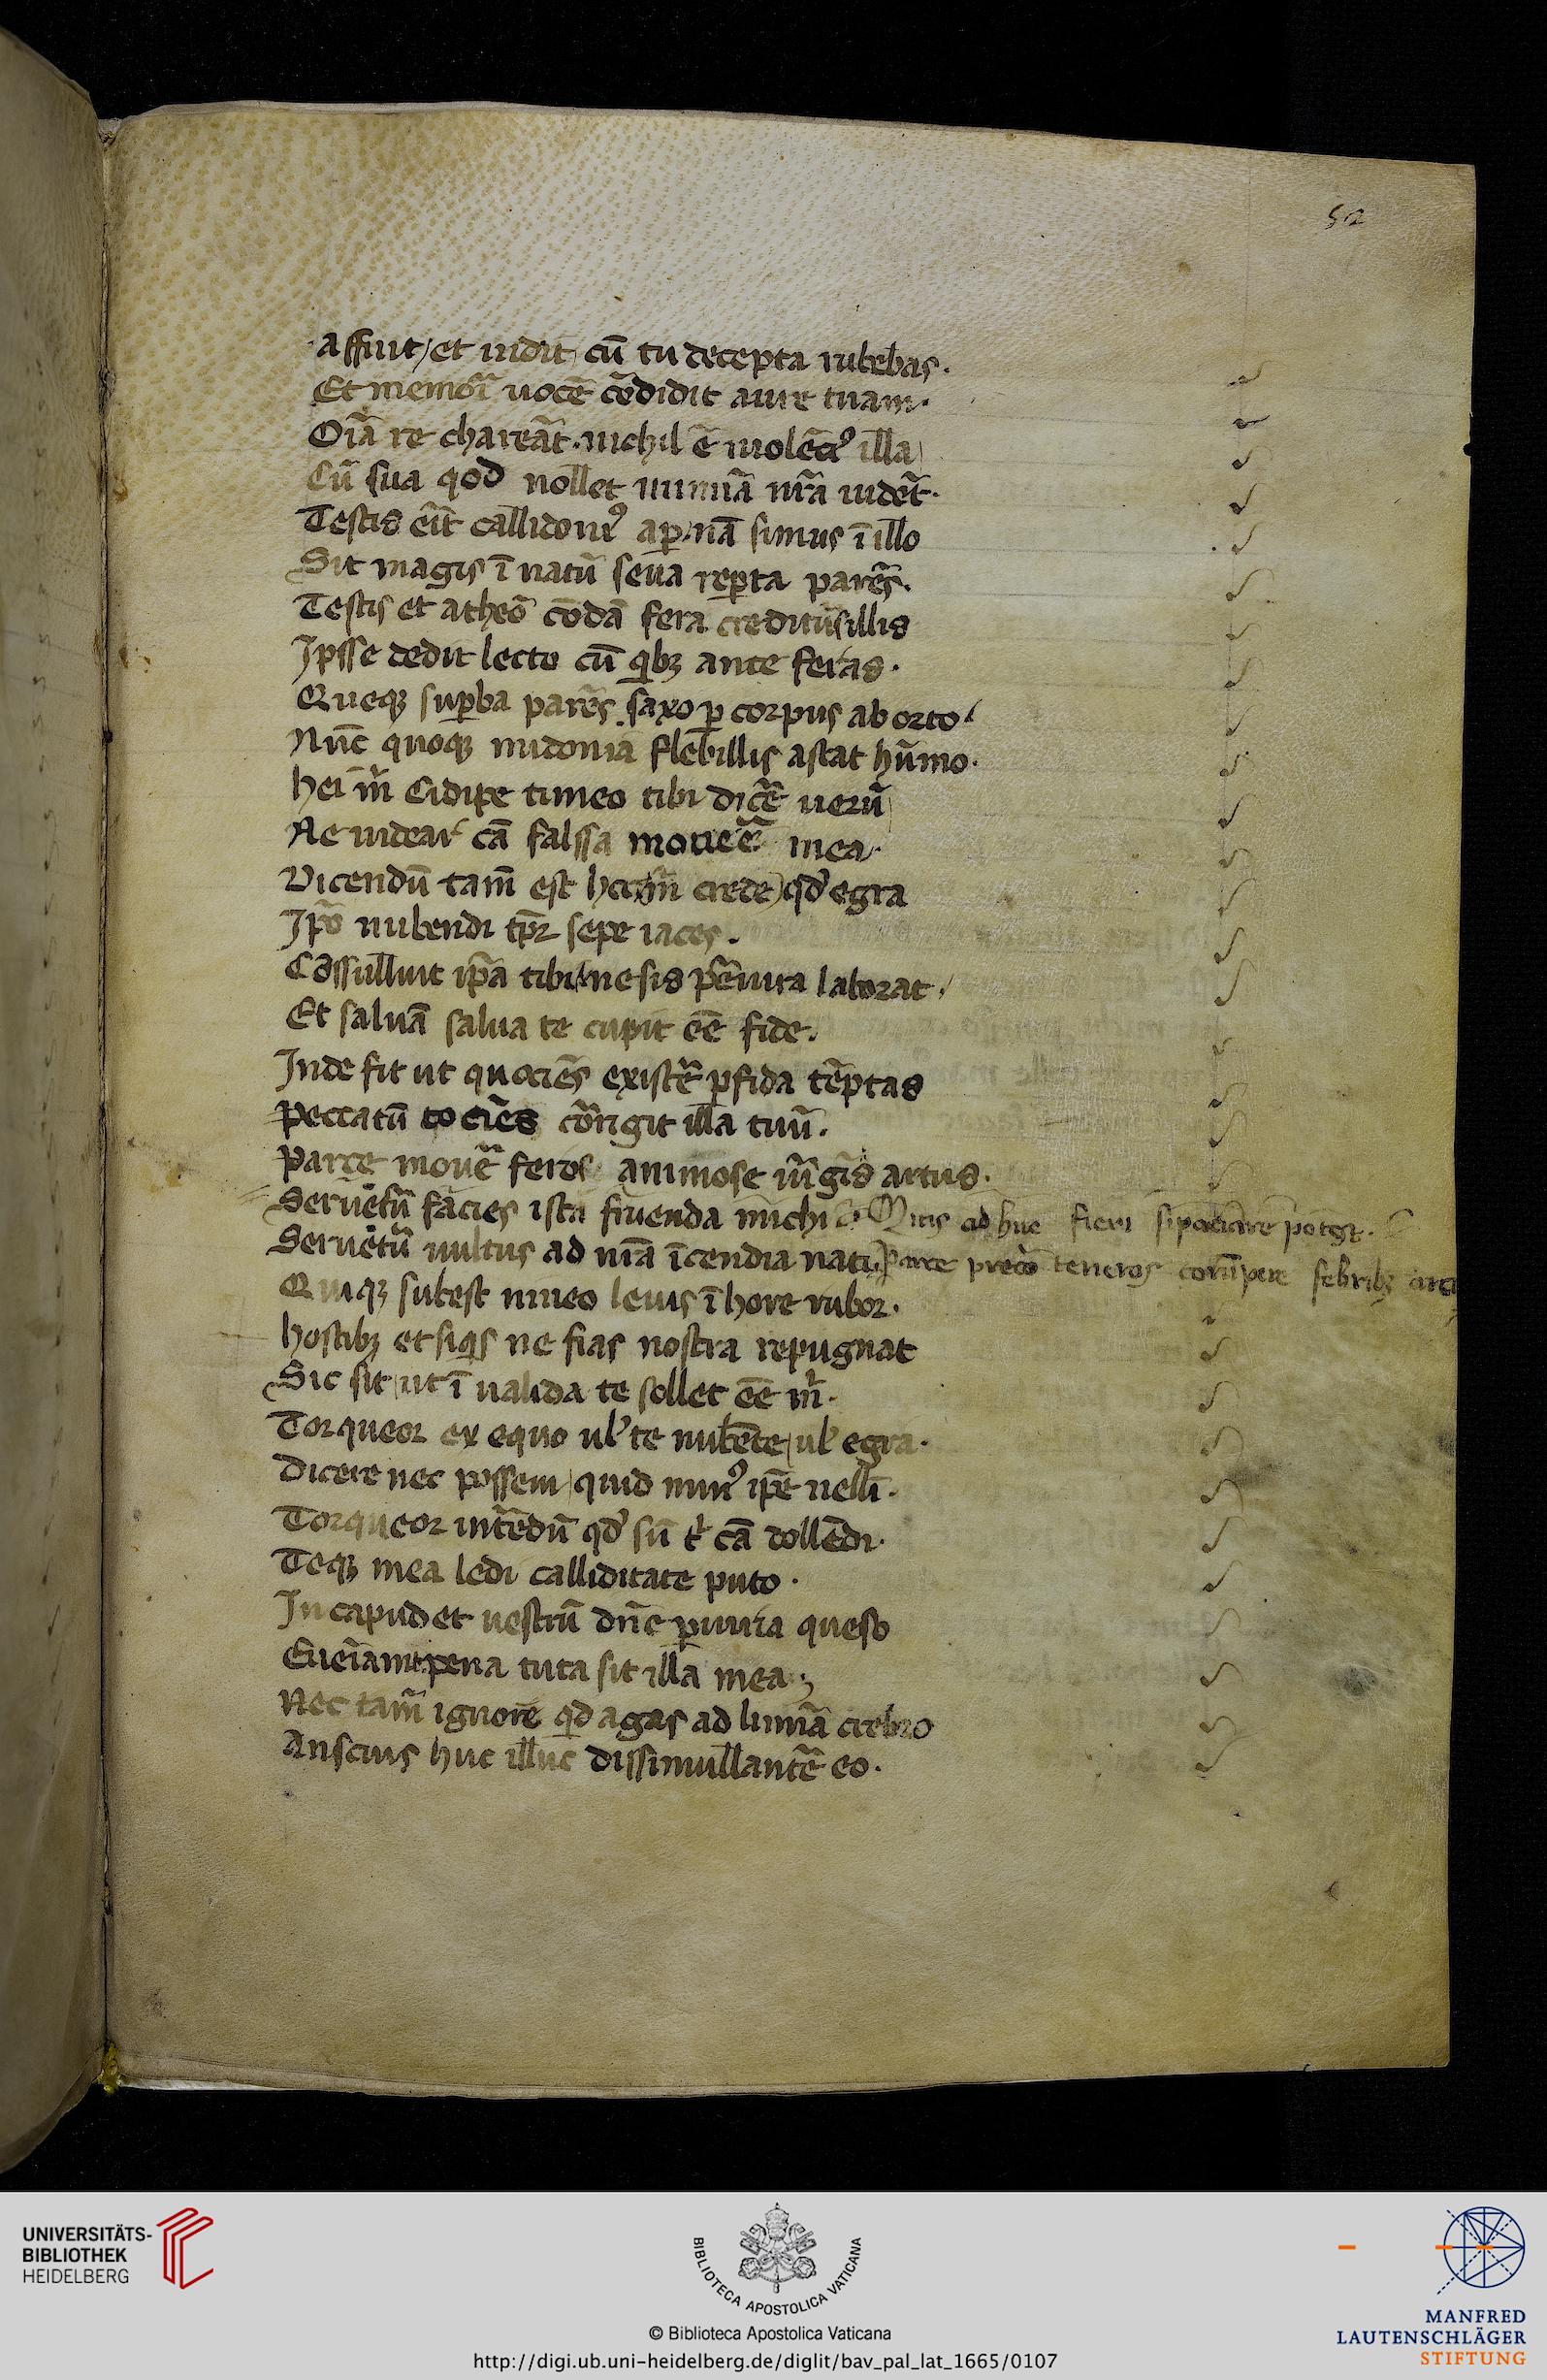 52
affuit et uidit cū tu decepta rubebas.
Et memōri uocē cōdidit aure tuam.
Oīa re chareāt. nichil ē uiolēcius illa
Cū sua qod nollet numīa nr̄a uidēt.
Testis erit callidonius aper. nā simus ī illo
Sit magis ī natū seua reperta parēs.
Testis et atheō cōdā fera creditus illis
Ipsse dedit lecto cū quibꝫ ante feras.
Queqꝫ superba parēs saxo per corpus ab orto
Nūc quoqꝫ midonia flebillis astat hūmo.
Hei mī Cidipe timeo tibi dicere uerū
Ne uidear cā falssa mouere mea.
Dicendū tamē est hoc mī crede qd̓ egra
Ipō nubendi tpr̄ sepe iaces.
Cōssulluit ip̄a tibi ne sis periura laborat.
Et saluā salua te cupit eē fide.
Inde fit ut quociēs existere perfida tēptas
Peccatū tociēs corrigit illa tuū.
Parce mouere feros animose uirgīs artus.
Seruētur facies ista fruenda michi Mitis ad huc fieri si paciare potest.
Seruētur uultus ad nr̄a īcendia nati Parce precor teneros corūpere febribꝫ
Quiqꝫ subest niueo leuis ī hore rubor.
Hostibꝫ et siqis ne fias nostra repugnat
Sic sit ut ī ualida te sollet eē mī.
Torqueor ex equo ul̓ te nubēte ul̓ egra.
Dicere nec possem quid minus ip̄e uelli.
Torqueor interdū qd̓ sū cā dollēdi.
Teqꝫ mea ledi calliditate puto.
In capud et uestrū dn̄e periuria queso
Eueīant pena tuta sit illa mea;
Nec tamē ignorē qd agas ad limīa crebro
Anscius huc illuc dissimullantēr eo.
UNIVERSITÄTS-
BIBLIOTHEK
HEIDELBERG
BIBLIOTECA APOSTOLICA VATICANA
© Biblioteca Apostolica Vaticana
http://digi.ub.uni-heidelberg.de/diglit/bav_pal_lat_1665/0107
MANFRED
LAUTENSCHLÄGER
STIFTUNG